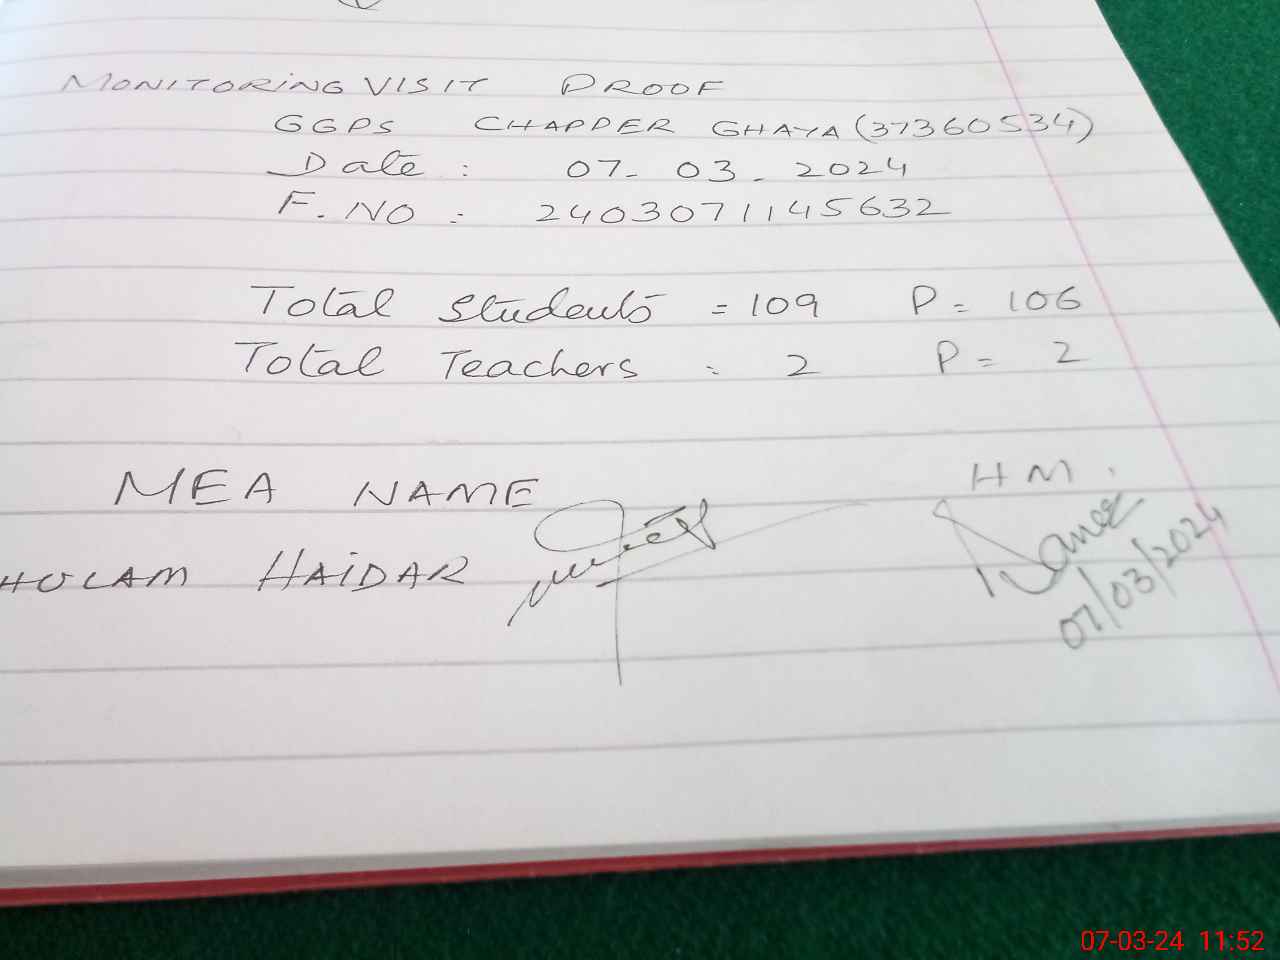 MONITORING VISIT PROOF
GGPS CHAPPER GHAYA (37360534)
Date : 07-03-2024
F.NO : 2403071145632
Total students = 109 P = 106
Total Teachers : 2 P = 2
MEA NAME
H M.
HULAM HAIDAR
07/03/2024
07-03-24 11:52